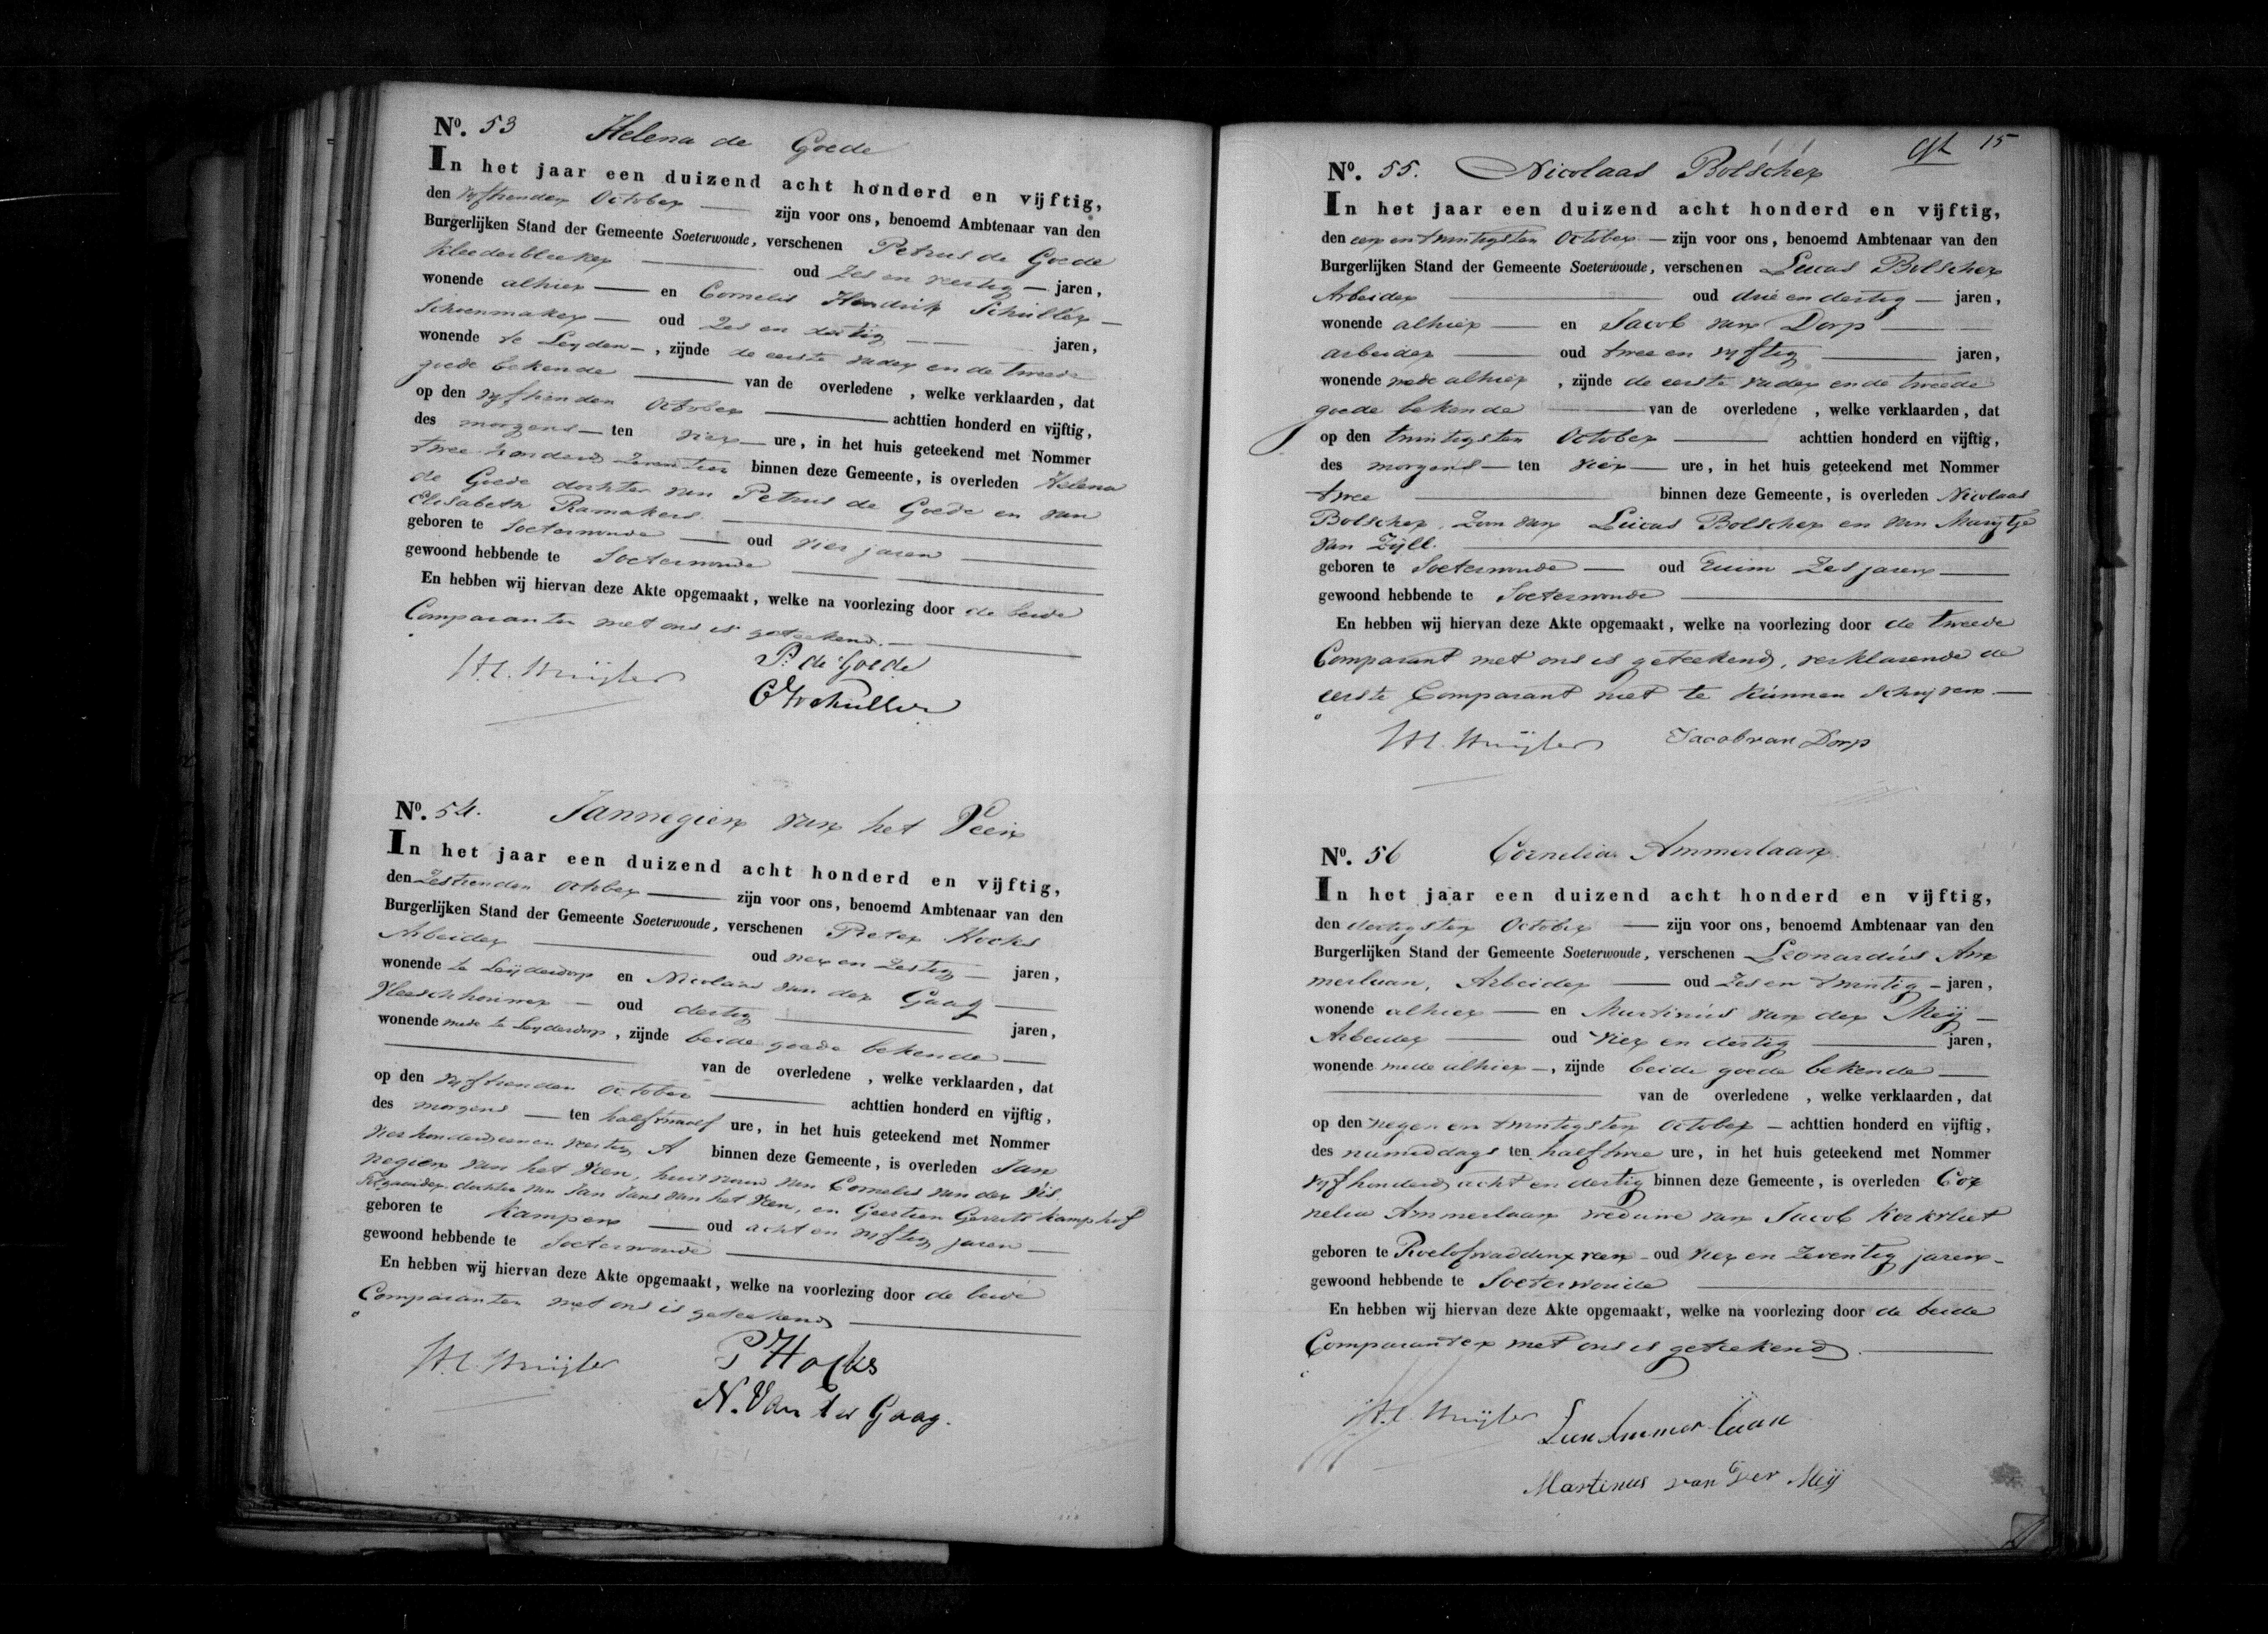 No. 53 Helena de Goede
In het jaar een duizend acht honderd en vijftig,
den vyftienden October zijn voor ons, benoemd Ambtenaar van den
Burgerlijken Stand der Gemeente Soeterwoude, verschenen Petrus de Goede
kleederbleeker oud zes en veertig jaren,
wonende alhier en Cornelis Hendrik Schuller
Schoenmaker oud zes en dertig jaren,
wonende te Leyden, zijnde de eerste vader en de tweede
goede bekende van de overledene, welke verklaarden, dat
op den vyftienden October achttien honderd en vijftig,
des morgens ten vier ure, in het huis geteekend met Nommer
twee honderd zeventien binnen deze Gemeente, is overleden Helena
de Goede dochter van Petrus de Goede en van
Elisabeth Ramakers.
geboren te Soeterwoude oud vier jaren
gewoond hebbende te Soeterwoude
En hebben wij hiervan deze Akte opgemaakt, welke na voorlezing door de beide
Comparanten met ons is geteekend.
P. de Goede
CHSchuller
No. 54. Jannegien van het Veen
In het jaar een duizend acht honderd en vijftig,
den Zestienden October zijn voor ons, benoemd Ambtenaar van den
Burgerlijken Stand der Gemeente Soeterwoude, verschenen Pieter Hocks
Arbeider oud vier en zestig jaren,
wonende te Leijderdorp en Nicolaas van der Gaag
Vleeschhouwer oud dertig jaren,
wonende mede te Leyderdorp, zijnde beide goede bekende
van de overledene, welke verklaarden, dat
op den vyftienden October achttien honderd en vijftig,
des morgens ten half twaalf ure, in het huis geteekend met Nommer
vierhonderdeenenveertig A binnen deze Gemeente, is overleden Jan
negien van het Veen, huisvrouw van Cornelis van der
dochter van Jan Jans van het Veen, en Geertien Gerrits Kamphof
geboren te Kampen oud acht en vyftig jaren
gewoond hebbende te Soeterwoude
En hebben wij hiervan deze Akte opgemaakt, welke na voorlezing door de beide
Comparanten met ons is geteekend
P Hocks
N. Van der Gaag.
15
No. 55. Nicolaas Bolscher
In het jaar een duizend acht honderd en vijftig,
den een en twintigsten October zijn voor ons, benoemd Ambtenaar van den
Burgerlijken Stand der Gemeente Soeterwoude, verschenen Lucas Bolscher
Arbeider oud drie en dertig jaren,
wonende alhier en Jacob van Dorp
arbeider oud twee en vyftig jaren,
wonende mede alhier, zijnde de eerste vader en de tweede
goede bekende van de overledene, welke verklaarden, dat
op den twintigsten October achttien honderd en vijftig,
des morgens ten vier ure, in het huis geteekend met Nommer
twee binnen deze Gemeente, is overleden Nicolaas
Bolscher, Zoon van Lucas Bolscher en van Marijtje
van Zijll.
geboren te Soeterwoude oud ruim zes jaren
gewoond hebbende te Soeterwoude
En hebben wij hiervan deze Akte opgemaakt, welke na voorlezing door de tweede
Comparant met ons is geteekend, verklarende de
eerste Comparant niet te kunnen schrijven.
Jacob van Dorp
No. 56 Cornelia Ammerlaan.
In het jaar een duizend acht honderd en vijftig,
den dertigsten October zijn voor ons, benoemd Ambtenaar van den
Burgerlijken Stand der Gemeente Soeterwoude, verschenen Leonardus Am
merlaan, Arbeider oud Zes en twintig jaren,
wonende alhier en Martinus van der Meij
Arbeider oud vier en dertig jaren,
wonende mede alhier, zijnde beide goede bekende
van de overledene, welke verklaarden, dat
op den negen en twintigsten October achttien honderd en vijftig,
des namiddags ten half twee ure, in het huis geteekend met Nommer
vyfhonderd acht en dertig binnen deze Gemeente, is overleden Cor
nelia Ammerlaan weduwe van Jacob Kerkvliet
geboren te Roelofwaddenxveen oud vier en zeventig jaren
gewoond hebbende te Soeterwoude
En hebben wij hiervan deze Akte opgemaakt, welke na voorlezing door de beide
Comparanten met ons is geteekend.
Leen Ammerlaan
Martinus van der Meij